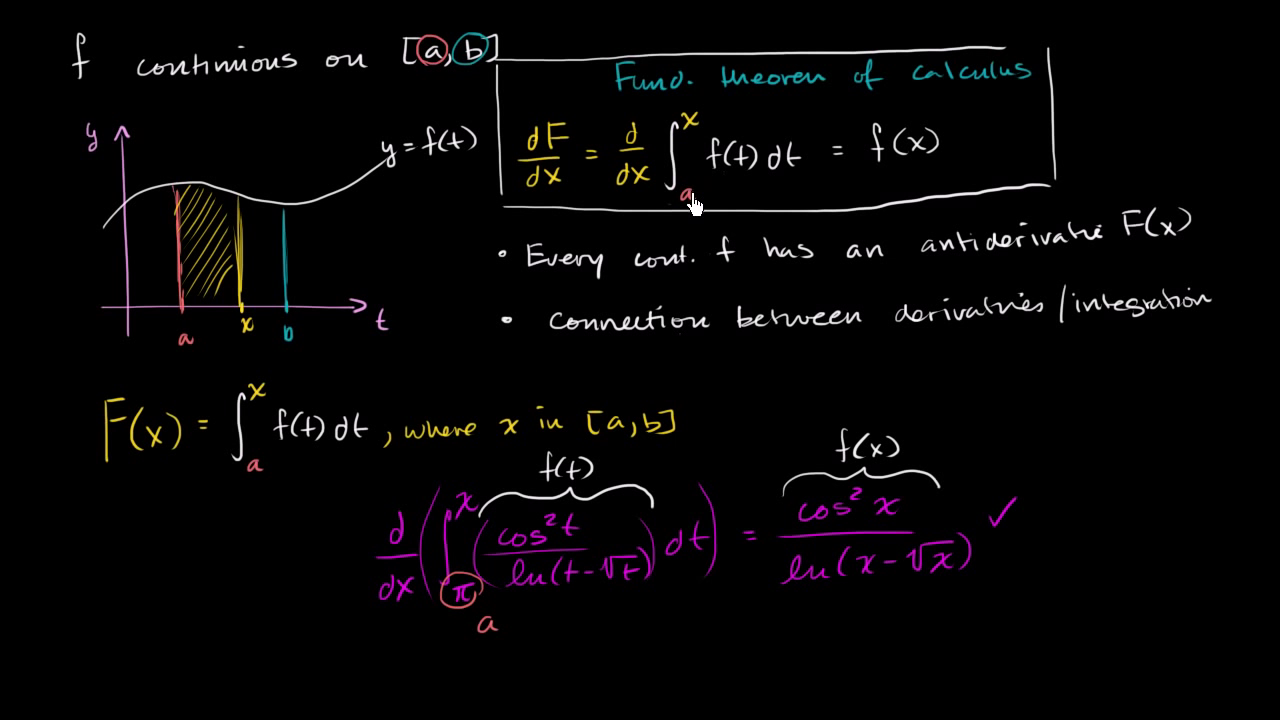 f continuous on [a, b]
Fund. theorem of calculus
dF/dx = d/dx ∫_a^x f(t) dt = f(x)
y
y = f(t)
a
x
b
t
• Every cont. f has an antiderivative F(x)
• Connection between derivatives/integration
F(x) = ∫_a^x f(t) dt, where x in [a, b]
f(t)
f(x)
d/dx (∫_π^x (cos² t / ln(t-√t)) dt) = cos² x / ln(x-√x) ✓
a